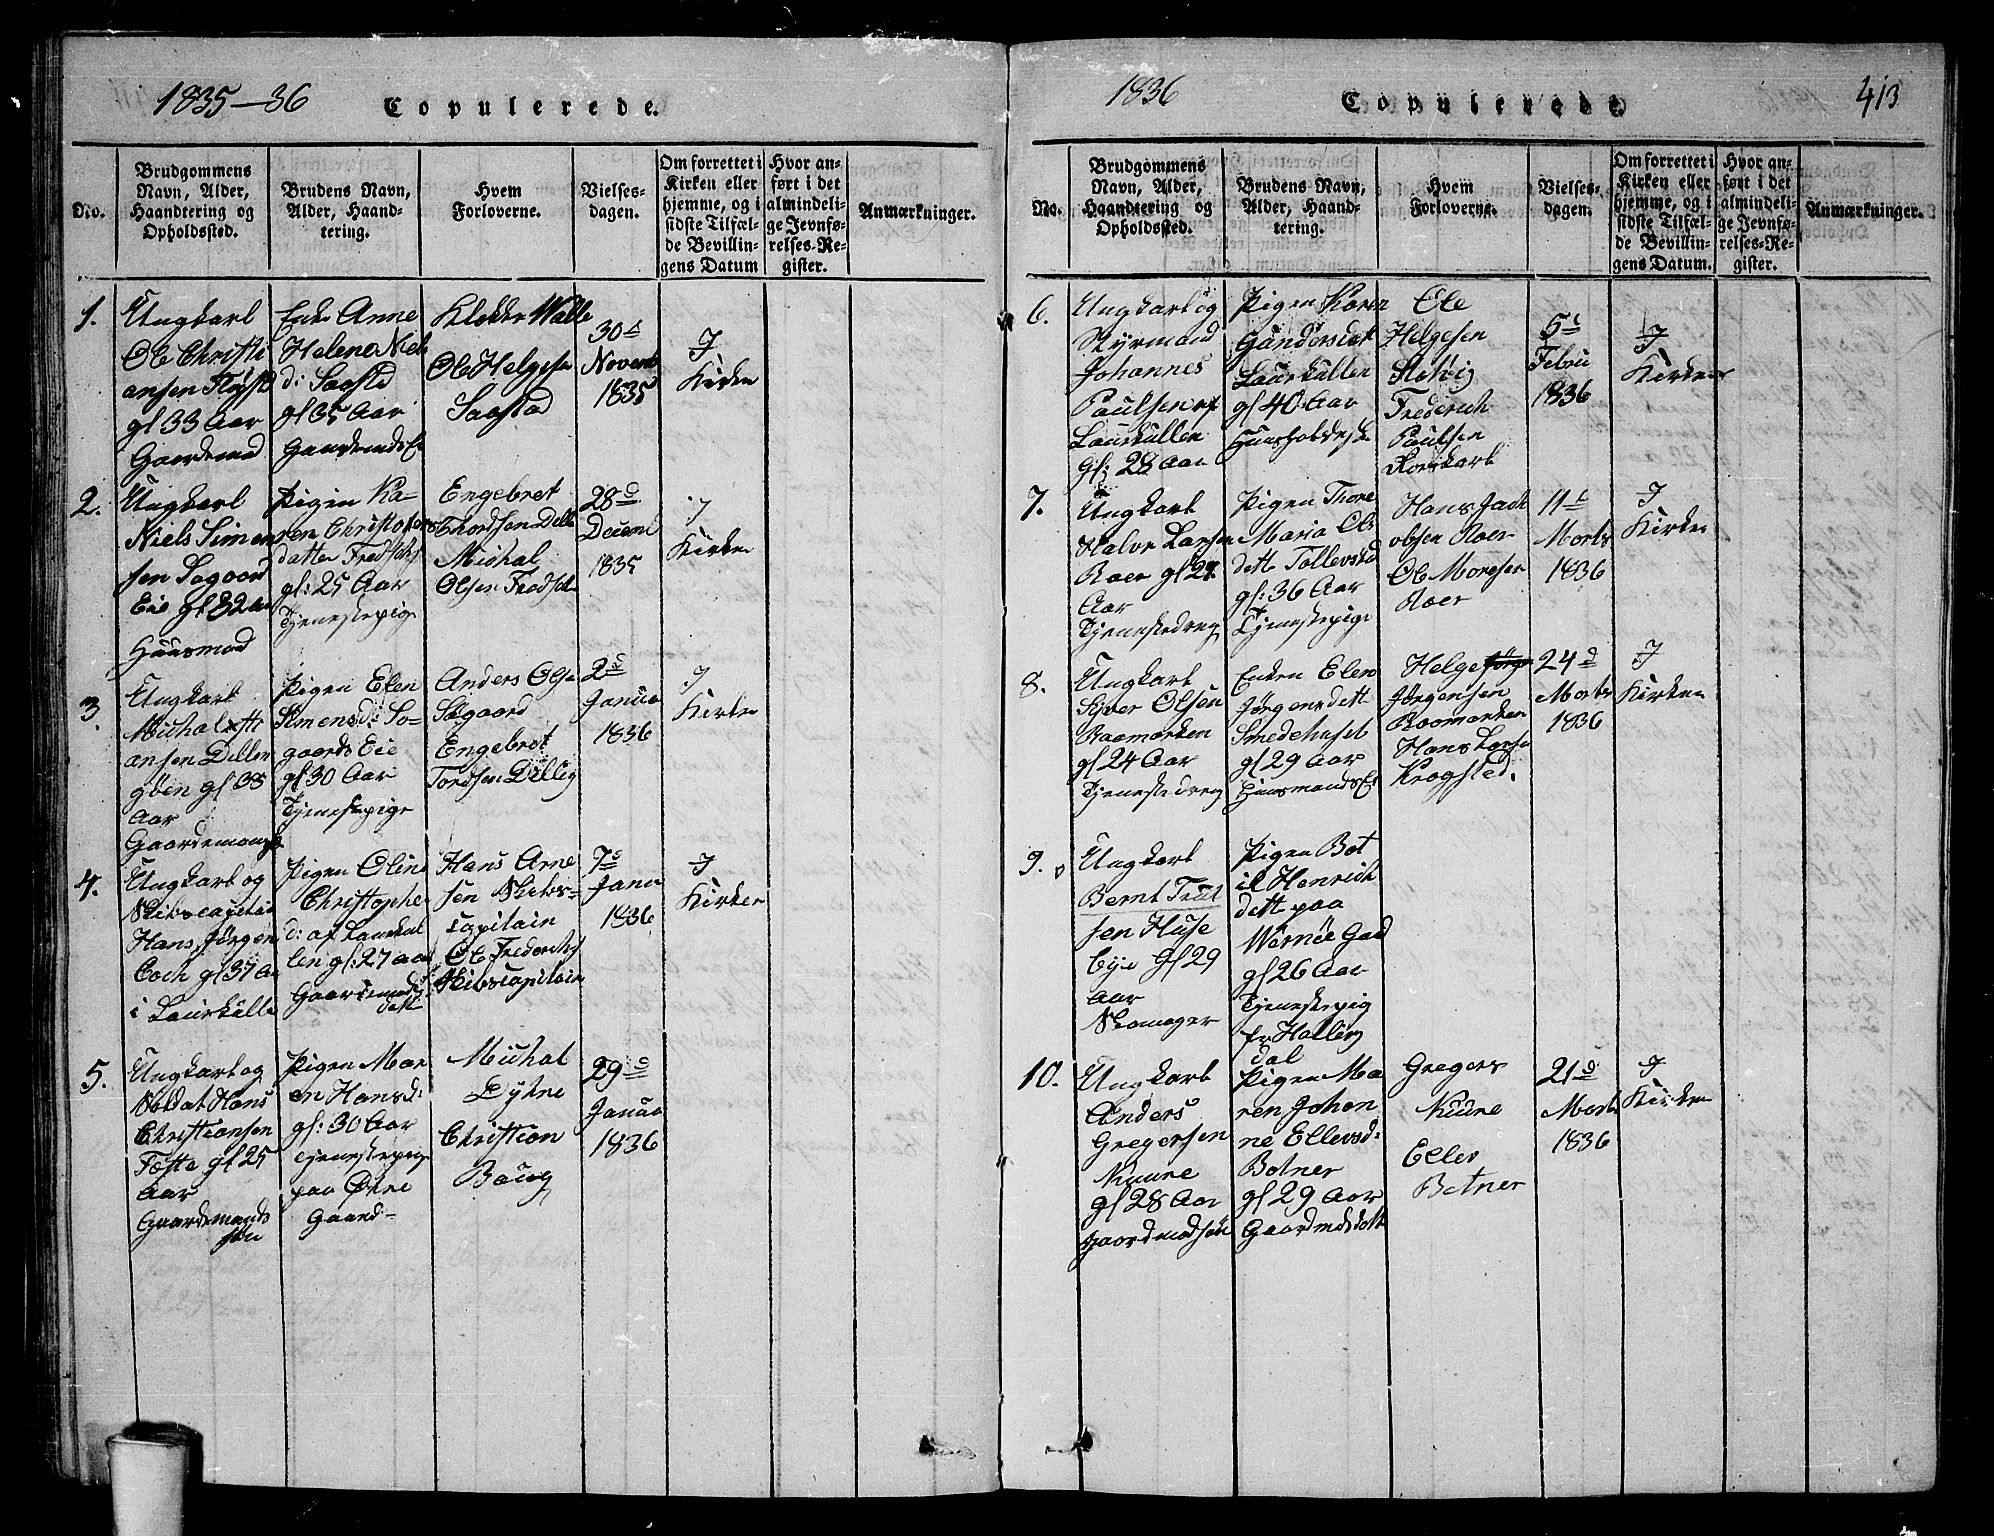 1835-36
Copulerede.
No.
Brudgommens
Navn, Alder,
Haandtering og
Opholdssted.
Brudens Navn,
Alder, Haand-
tering.
Hvem
Forloverne.
Vielses-
dagen.
Om forrettet i
Kirken eller
hjemme, og i
sidste Tilfæl-
de Bevillin-
gens Datum
Hvor an-
ført i det
almindeli-
ge Jevnfø-
relses-Re-
gister.
Anmærkninger.
1.
Ungkarl
Ole Christi
ansen
gl 33 Aar
Gaardmad
Enke Anne
Helene Niels
d: Sagstd
gl 35 Aar
Klokker Walle
Ole Helgesen
Sagstad
30d
Novemb
1835
I
Kirken
2.
Ungkarl
Niels Simen
sen Sogaard
Eie gl 32 Aar
Huusmad
Pigen Ka-
ren Christophers
datter
gl: 25 Aar
Tjenestepige
Engebret
Thordsen Dill
Michal
Olsen
28d
Decemb
1835
I
Kirken
3.
Ungkarl
Michal
ansen Dillen
gøen gl 38
Aar
Gaardemands
Pigen Elen
Simensd: So-
gaards Eie
gl 30 Aar
Tjenestepige
Anders Olse
Sogaard
Engebret
Tordsen Dilling
2d
Janua
1836
I
Kirken
4.
Ungkarl og
Skibscapitain
Hans Jørgen
Coch gl 37 Aa
i Laurkulle
Pigen Oline
Christophe
d: af Laurkul
len gl: 27 Aa
Gaardmads
datt
Hans Arne
sen Skibs-
capitain
Ole Frederichs
Skibscapitain
7d
Janua
1836
I
Kirken
5.
Ungkarl og
Soldat Hans
Christiansen
Tofte gl 25
Aar
Gaardemands
søn
Pigen Mar
en Hansd:
gl: 30 Aar
tjenestepige
paa Østre
Gaard-
Michal
Dyhre
Christian
Baug
29d
Janua
1836
1836
Copulerede.
413
No.
Brudgommens
Navn, Alder,
Haandtering og
Opholdssted.
Brudens Navn,
Alder, Haand-
tering.
Hvem
Forloverne.
Vielses-
dagen.
Om forrettet i
Kirken eller
hjemme, og i
sidste Tilfæl-
de Bevillin-
gens Datum.
Hvor an-
ført i det
almindeli-
ge Jevnfø-
relses-Re-
gister.
Anmærkninger.
6.
Ungkarl og
Styrmand
Johannes
Paulsen af
Laurkullen
gl: 28 Aar
Pigen Karen
Gundersdat
Laurkullen
gl 40 Aar
Ole
Helgesen
Frederich
Paulsen
5t
Febru
1836
I
Kirken
7.
Ungkarl
Halvr Larsen
Roer gl 27
Aar
Tjenestedreng
Pigen Thore
Maria Ols
datte Tollevstad
gl: 36 Aar
Tjenestepige
Hans Jach
obsen Roer
Ole Moresen
Roer
11t
Marts
1836
I
Kirken
8.
Ungkarl
Syver Olsen
Raamarken
gl 24 Aar
Tjenestedreng
Enken Elen
Jørgensdatt
Smedehuset
gl 29 Aar
Huusmands
Helge
Jørgensen
Raamarken
Hans Larsen
Krogsted.
24d
Marts
1836
I
Kirken
9.
Ungkarl
Bernt Trul
sen Huse
bye gl 29
Aar
Skomager
Pigen Bot
il Henrich
datt paa
Wernøe Gad
gl 26 Aar
Tjenestepig
fr Halling
dal
10.
Ungkarl
Anders
Gregersen
Kuure
gl 28 Aar
gaardmadsøn
Pigen Ma
ren Johan
ne Ellevsd:
Botner
gl 29 Aar
Gaardmdsdatt
Gregers
Kuure
Ellev
Botner
21d
Marts
1836
I
Kirken